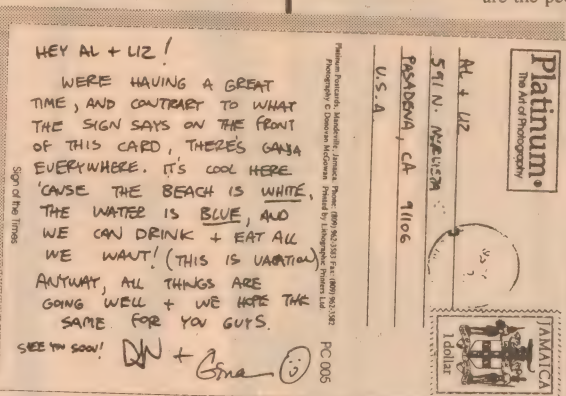 are the pe
HEY AL + LIZ!
WERE HAVING A GREAT
TIME, AND CONTRARY TO WHAT
THE SIGN SAYS ON THE FRONT
OF THIS CARD, THERE'S GANJA
EVERYWHERE. IT'S COOL HERE
'CAUSE THE BEACH IS WHITE,
THE WATER IS BLUE, AND
WE CAN DRINK + EAT ALL
WE WANT! (THIS IS VACATION)
ANYWAY, ALL THINGS ARE
GOING WELL + WE HOPE THE
SAME FOR YOU GUYS.
SEE YOU SOON! DAN + Gina
Sign of the Times
Platinum Postcards, Mandeville, Jamaica. Phone: (809) 962-3583 Fax: (809) 962-3582
Photography © Donovan McGowan Printed by Lithographic Printers Ltd.
PC 005
Platinum
The Art of Photography
AL + LIZ
591 N.
PASADENA, CA 91106
U.S.A
JAMAICA
1 dollar